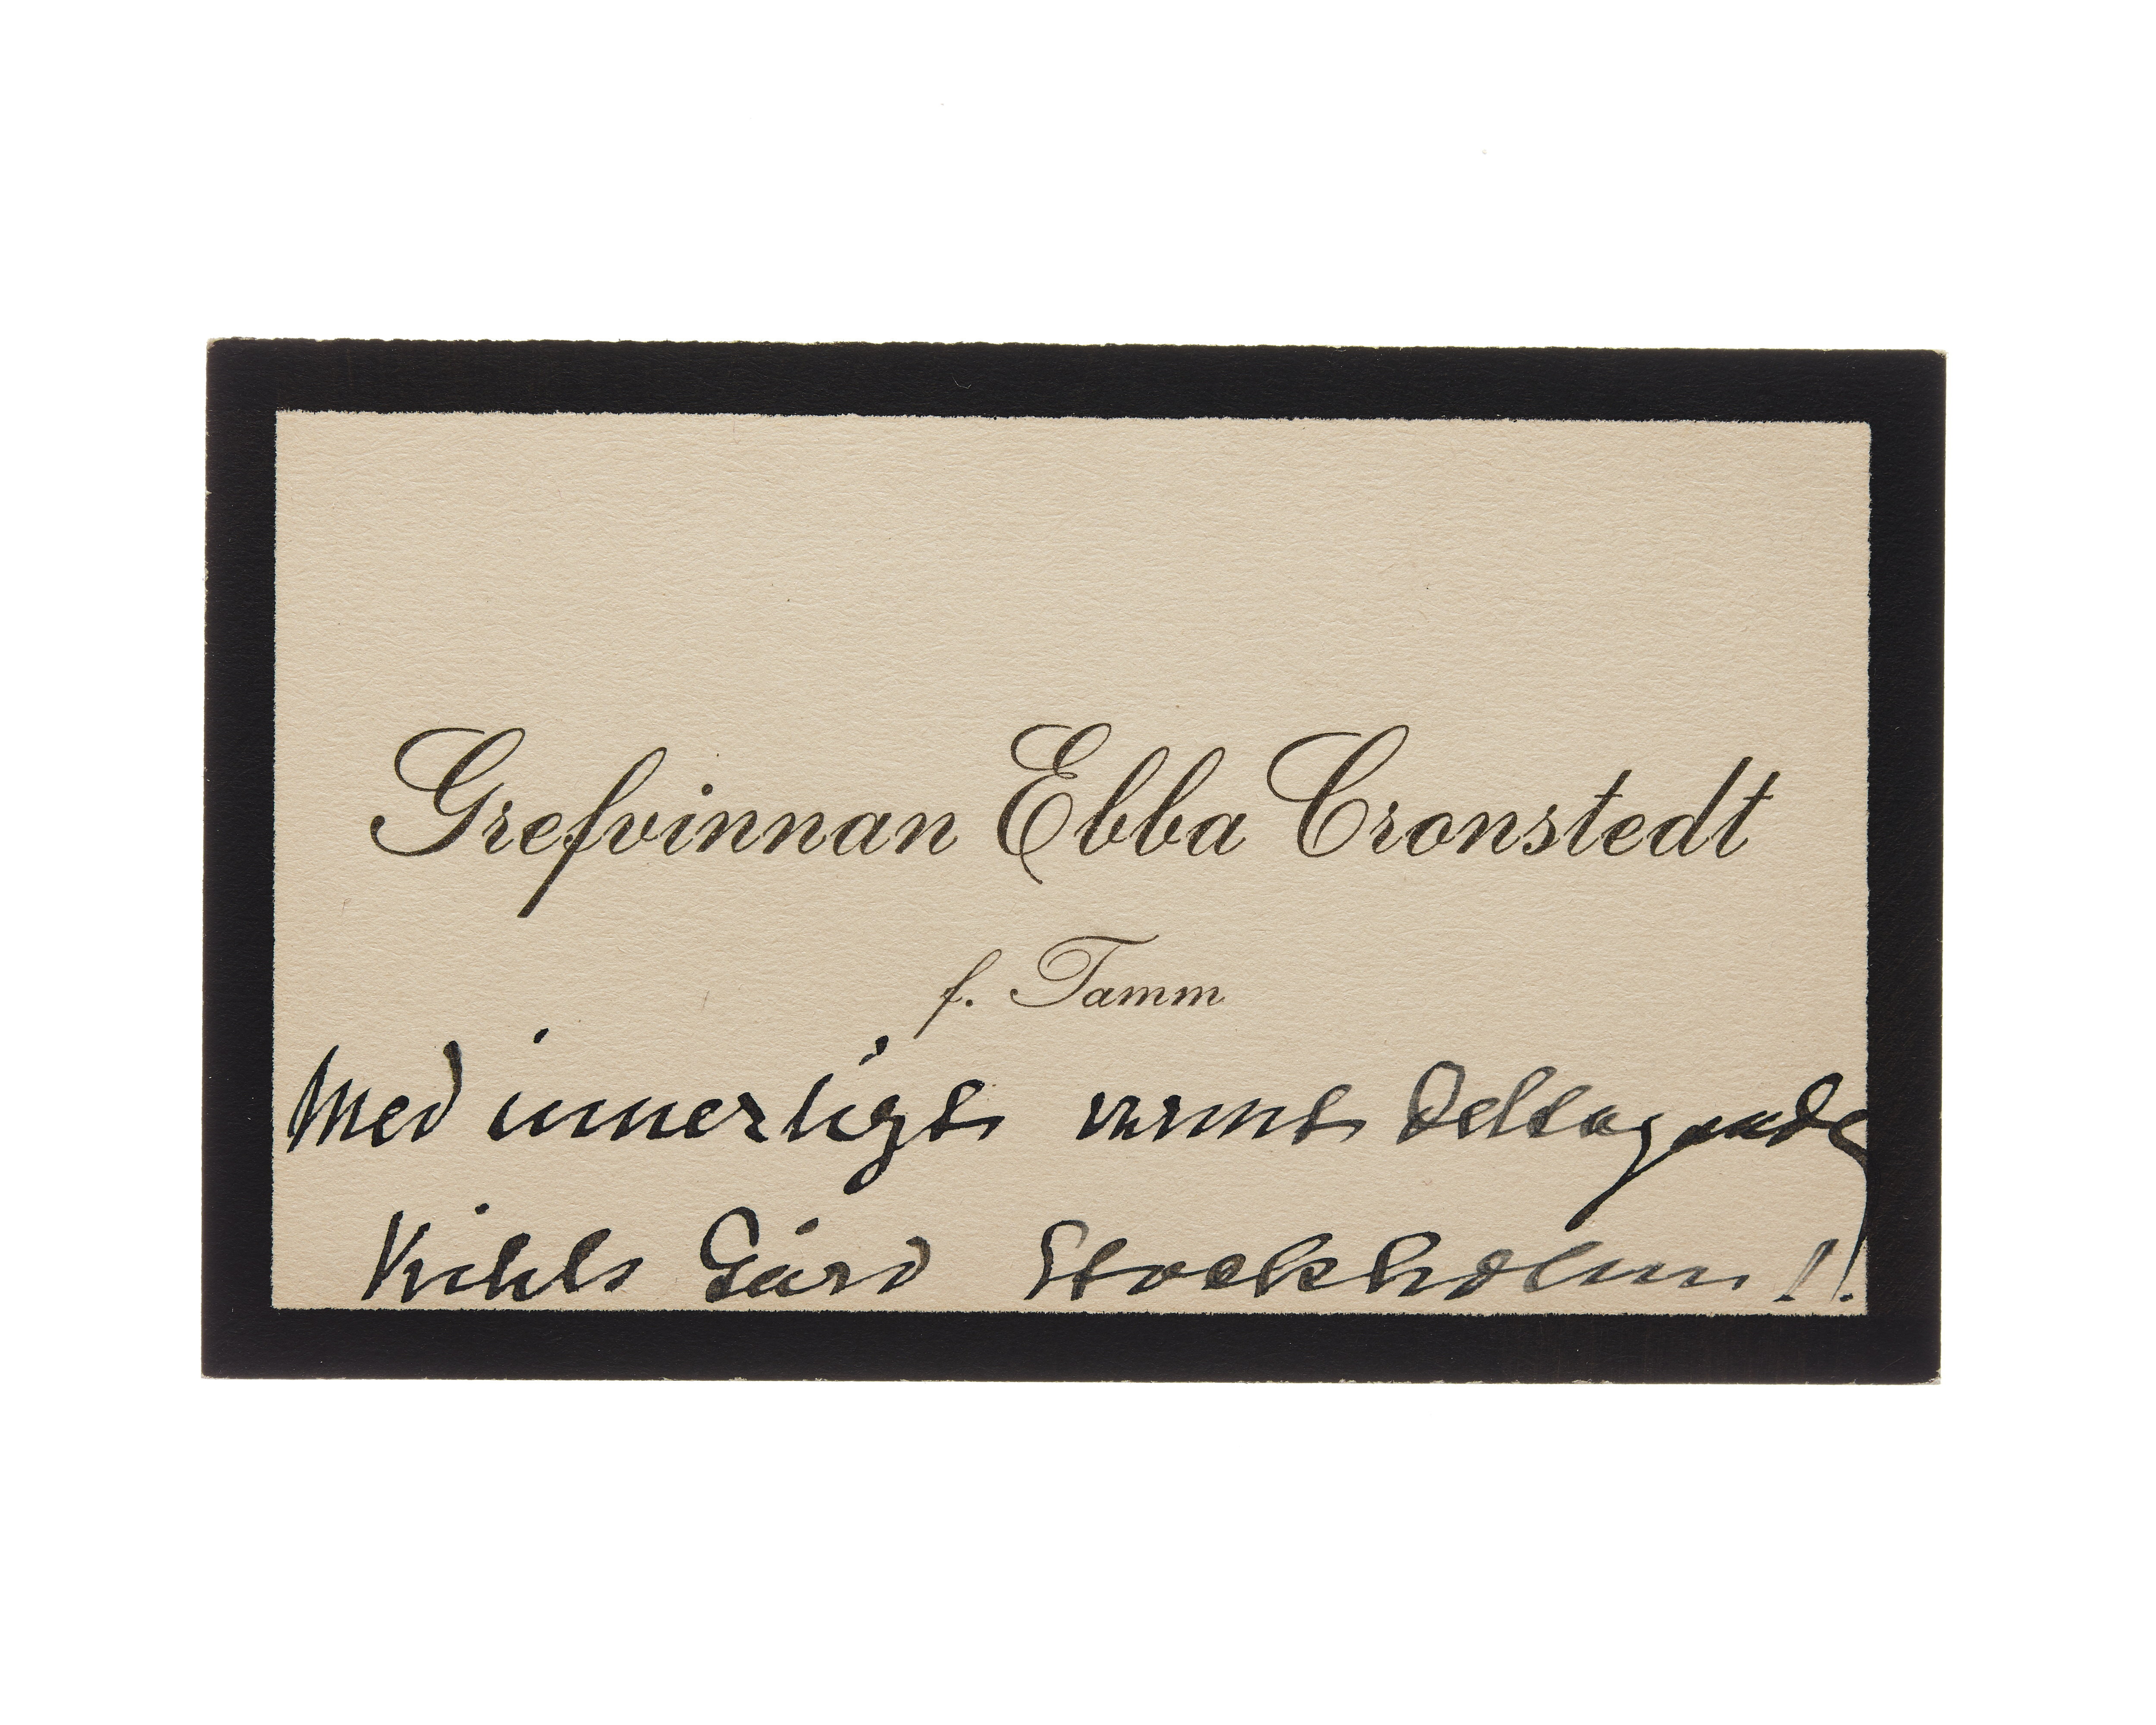 Grefvinnan Ebba Cronstedt
f. Tamm
Med innerligt varmt Deltagande
Gård Stockholm